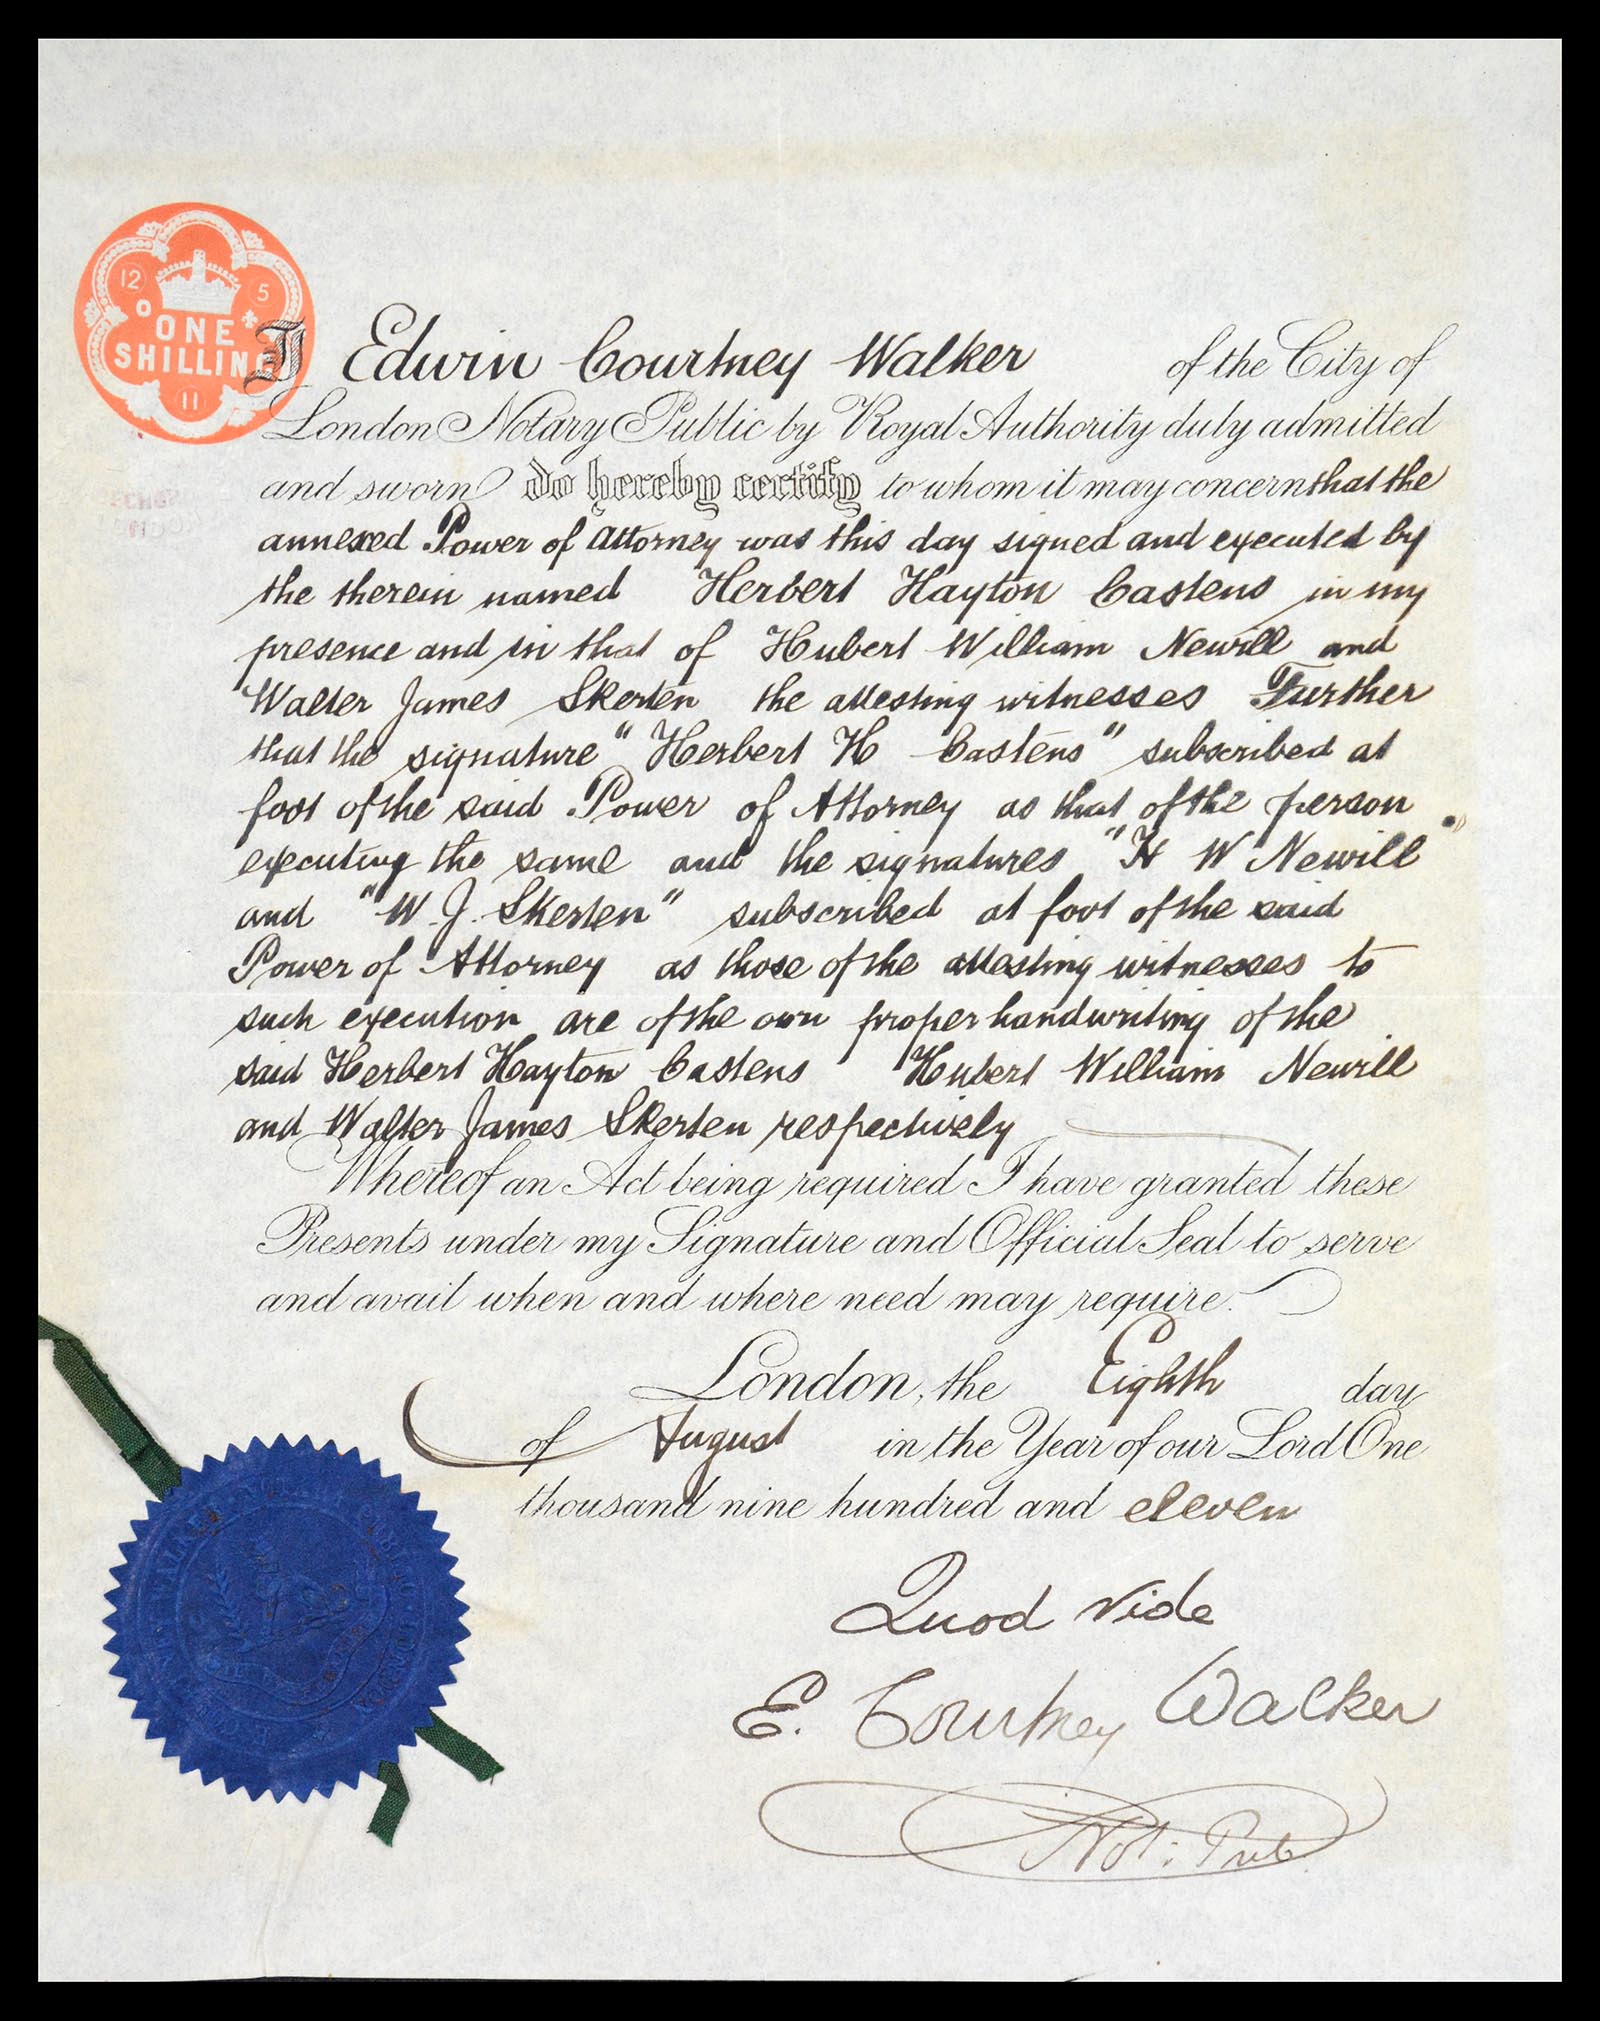 12
5
ONE
SHILLING
11
I Edwin Courtney Walker of the City of
London Notary Public by Royal Authority duly admitted
and sworn do hereby certify to whom it may concern that the
annexed Power of Attorney was this day signed and executed by
the therein named Herbert Hayton Castens in my
presence and in that of Hubert William Newill and
Walter James Skerten the attesting witnesses Further
that the signature "Herbert H Castens" subscribed at
foot of the said Power of Attorney as that of the person
executing the same and the signatures "H W Newill"
and "W. J. Skerten" subscribed at foot of the said
Power of Attorney as those of the attesting witnesses to
such execution are of the own proper handwriting of the
said Herbert Hayton Castens Hubert William Newill
and Walter James Skerten respectively
Whereof an Act being required I have granted these
Presents under my Signature and Official Seal to serve
and avail when and where need may require.
London, the Eighth day
of August in the Year of our Lord One
thousand nine hundred and eleven
Quod Vide
E. Courtney Walker
Not: Pub.